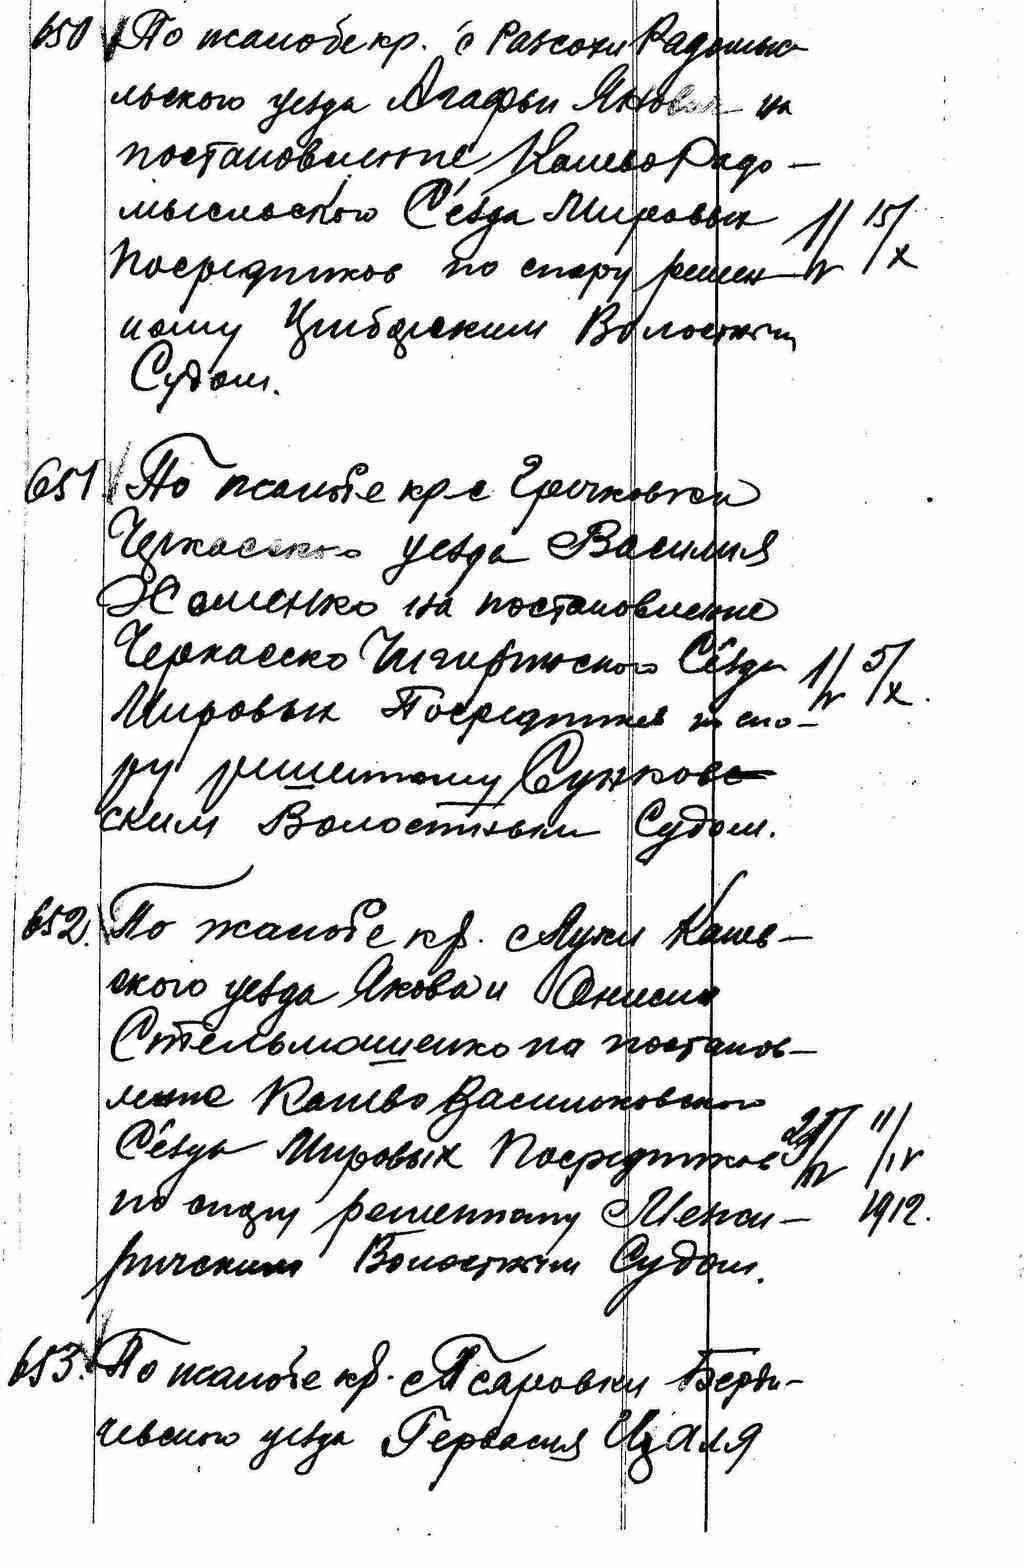 650 По жалобе кр. с Ражохи Радомыс-
льского уезда Агафьи Янович на
постановление Киево Радо-
мысльского Съезда Мировых 1/IV 15/X
Посредников по спору решен-
ному Цибовским Волостным
Судом.
651 По жалобе кр с Гречковки
Черкасского уезда Василия
Хоменко на постановление
Черкасско Чигиринского Съезда 1/IV 5/X.
Мировых Посредников по спо-
ру решенному Сунковс-
ским Волостным Судом.
652. По жалобе кр. с Луки Канев-
ского уезда Якова и Онисима
Стельмашенко на постанов-
ление Канево Васильковского
Съезда Мировых Посредников 11/IV
по спору решенному Межи- 1912.
ричским Волостным Судом.
653. По жалобе кр. с Псяровки Берди-
чевского уезда Гервасия